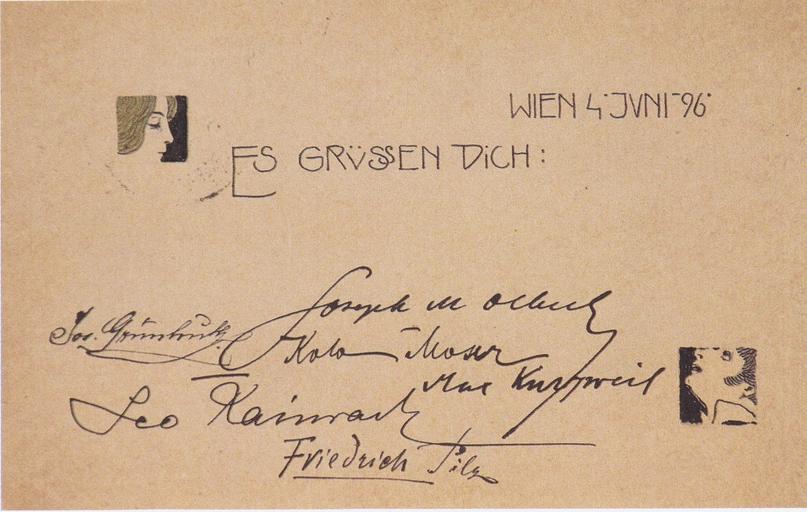 WIEN 4·JVNI-96·
ES GRÜSSEN DiCH:
Joseph M Olbrich
Jos.
Kolo Moser
Max Kurzweil
Leo Kainrach
Friedrich Pilz